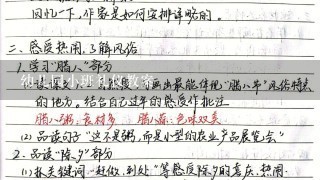 回忆一下，作家是如何安排详略的。
二、感受热闹，了解风俗
1.学习“腊八”部分
画出最能体现“腊八节”风俗特点
的地方。结合自己过年的感受作批注
腊八粥：食材多 腊八蒜：色味双美
(2)品读句子“这不是粥，而是小型的农业产品展览会”
2.品读“除夕”部分
(1)抓关键词“赶做、到处”等感受除夕的喜庆、热闹